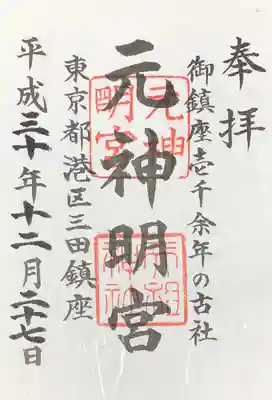 奉拝
御鎮座壱千余年の古社
元神明宮
東京都港区三田鎮座
平成三十年十二月二十七日
元神明宮